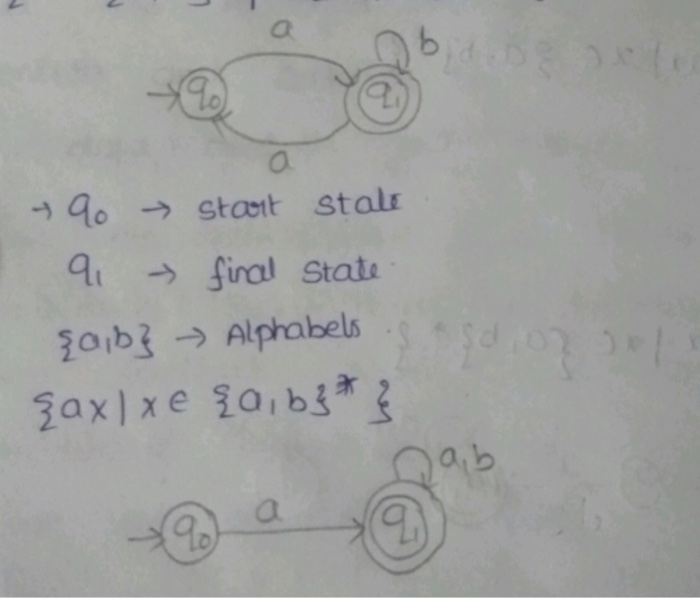 a
b
q0
q1
a
→ q0 → start state
q1 → final state
{a,b} → Alphabels
{ax | x ∈ {a,b}* }
a,b
q0
a
q1